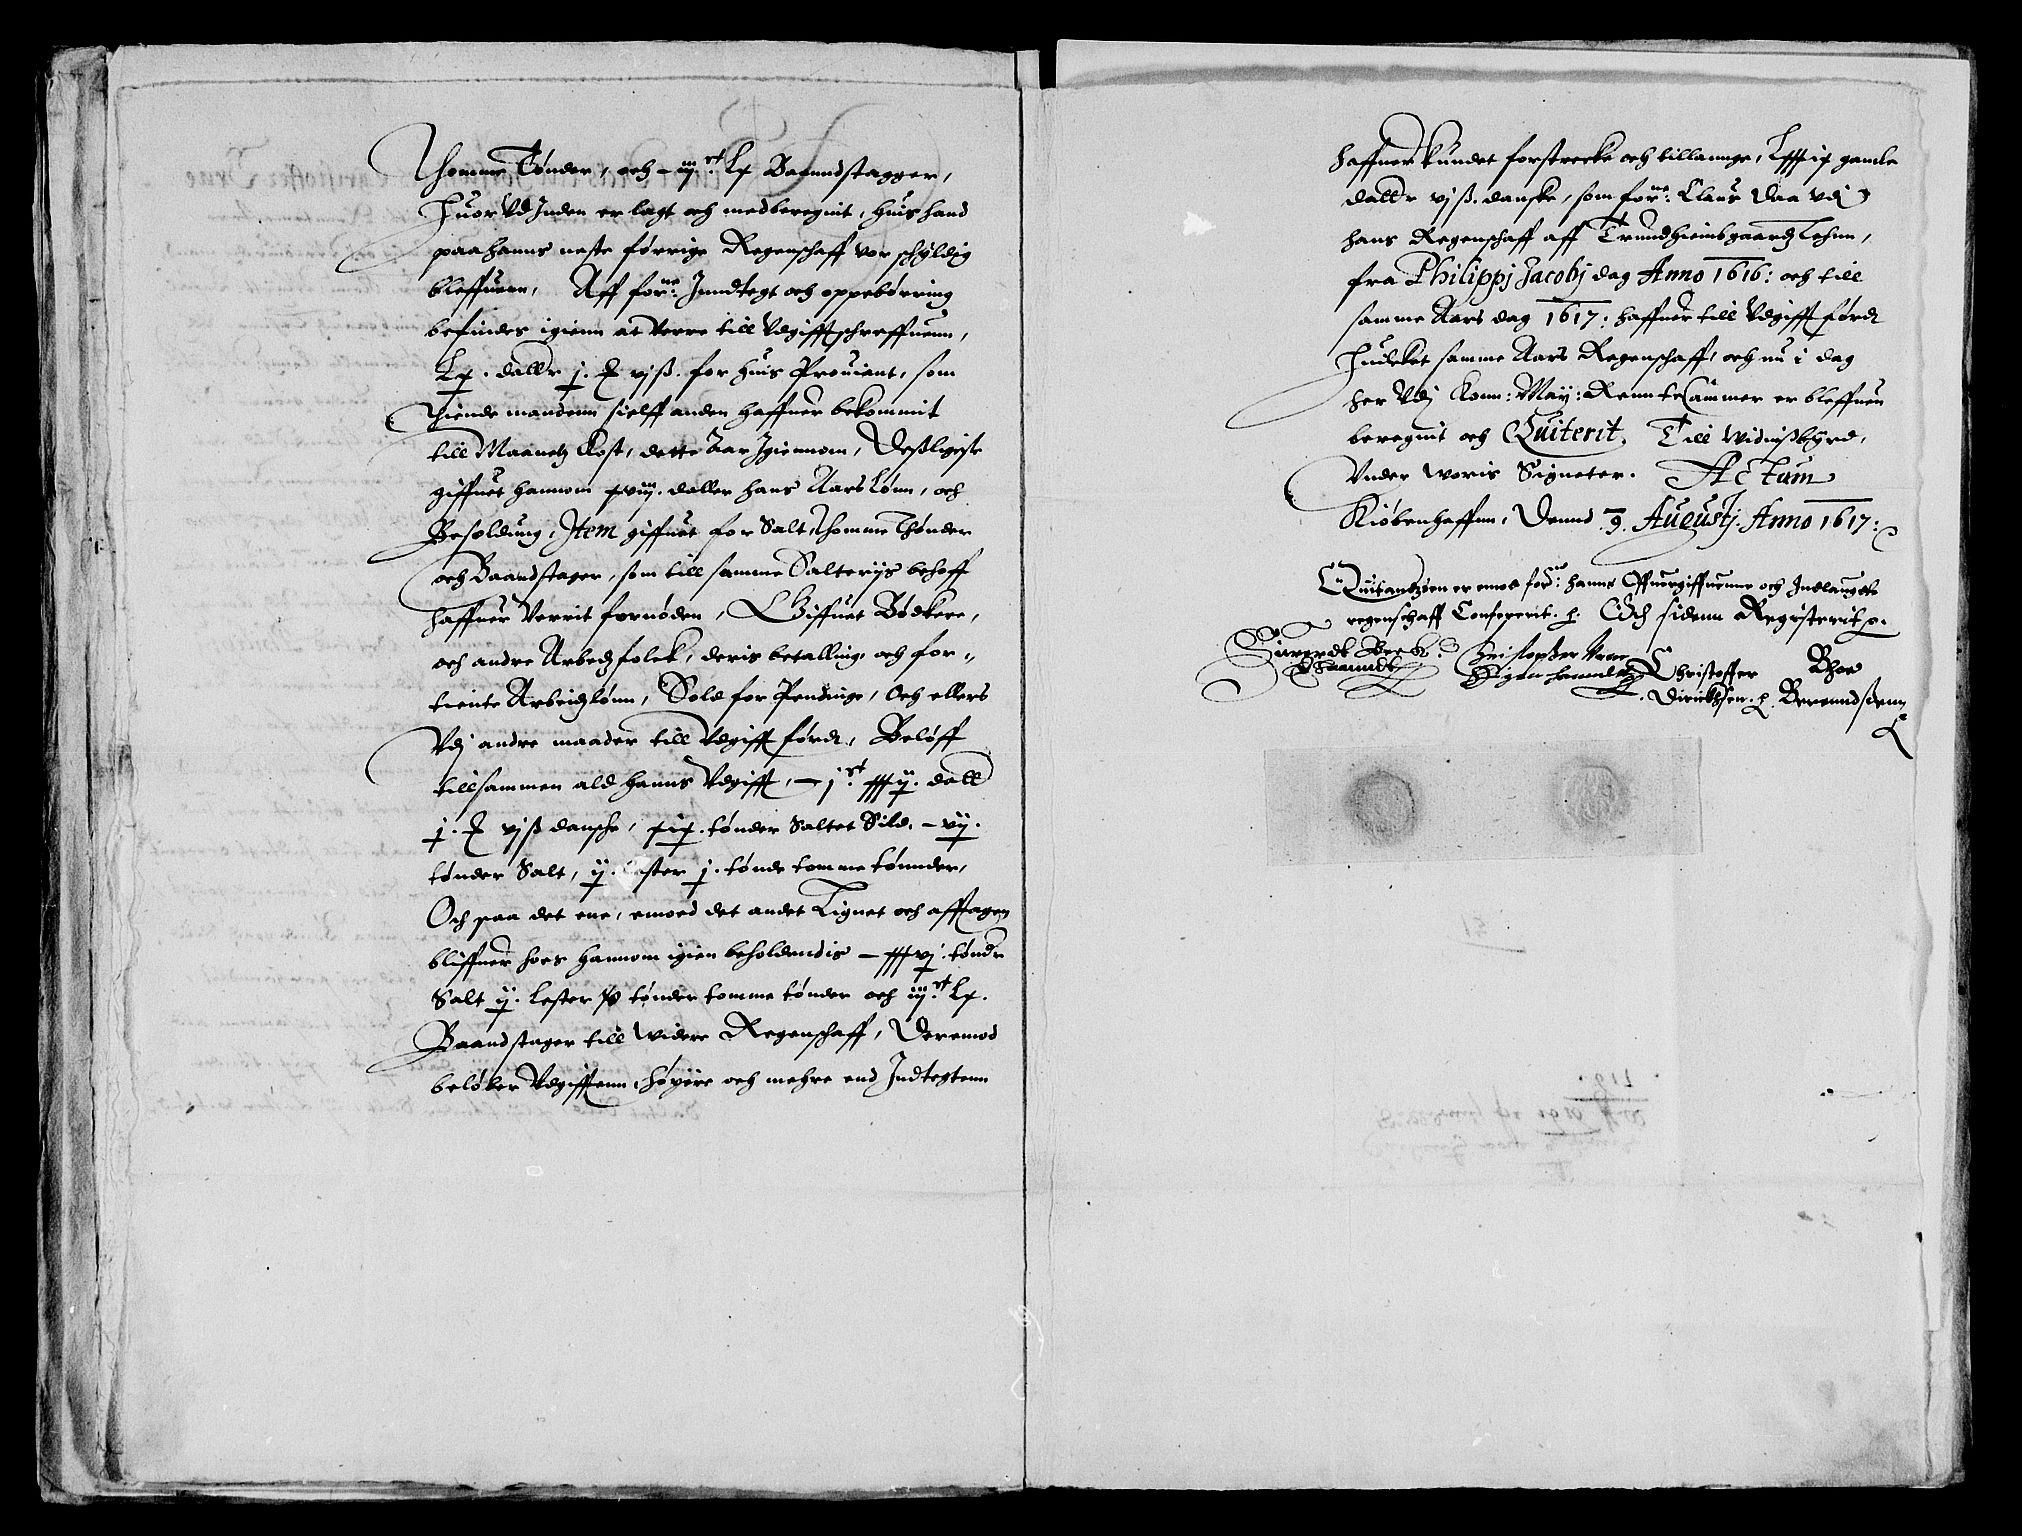 Thomme Tønder, och - iijst. Lx Baandstagger,
Huor Vdj Inden er lagt och medberegnit, huis hand
paa hanns neste førrige Regenschaff vor schyldig
bleffuen, Aff forne: Inndtegt och oppebørring
befindes igienn at Verre till Vdgifft schreffuenn,
Lx. dallr j. ℥ vjß. for huis Prouiant, som
Thiende mandenn sielff anden haffuer bekommit
till Maanetz Kost, dette Aar Igiennom, Desligeste
giffuet hannom xviij. daller hans Aars Lønn, och
Besoldung, Item giffuet for Salt, Thomme Thønder
och Baandstager, som till samme Salterijs behoff
haffuer Verrit fornøden, Giffuet Bødkere,
och andre Arbedzfolck, deris betalling, och for-
tiente Arbeidzlønn, Sold for Pendinge, Och ellers
Vdj andre maader till Vdgifft førdt, Beløff
tillsammen ald hanns Vdgifft, - jst. xxxij. dall
j. ℥ vjß dansche, xix. tønder Saltet Sild, - vij.
tønder Salt, ij. Lester j. tønde tomme tønnder,
Och paa det ene, emoed det andet Lignet och afftagen
bliffuer hoes hannom igien beholdendis - xxxvj. tøndr
Salt ij. Lester tønder tomme tønder och iijst. Lx.
Baandstager till widere Regenschaff, Deremod
beløber Vdgifftenn, høyere och mehre end Indtegtenn
haffuer kundet forstrecke och tillannge, Lxxxix gamle
dallr vj ß. danske, som forne: Claus Daa vdj
hans Regenschaff aff Trundhiembsgaardz Lehnn,
fra Philippj Jacobj dag Anno 1616: och till
samme Aars dag 1617: haffuer till Vdgifft førdt
Huilcket samme Aars Regenschaff, och nu i dag
her Vdj Konn: May: RenntteCammer er bleffuen
beregnit och Quiterit, Till widnißbyrd,
Vnder woris Signeter. Actum
Kiøbenhaffnn, Dennd 9. Augustj. Anno 1617:
Quitandzien er emod forne: hanns Offuergiffuenne och Indlaugde
regenschaff Confererit. Och sidenn Registerit.
Siuerdt Beck
Christoffer Vrne
Egen haandt
Christoffer Bhoe
Dirichsen. Berenndsenn